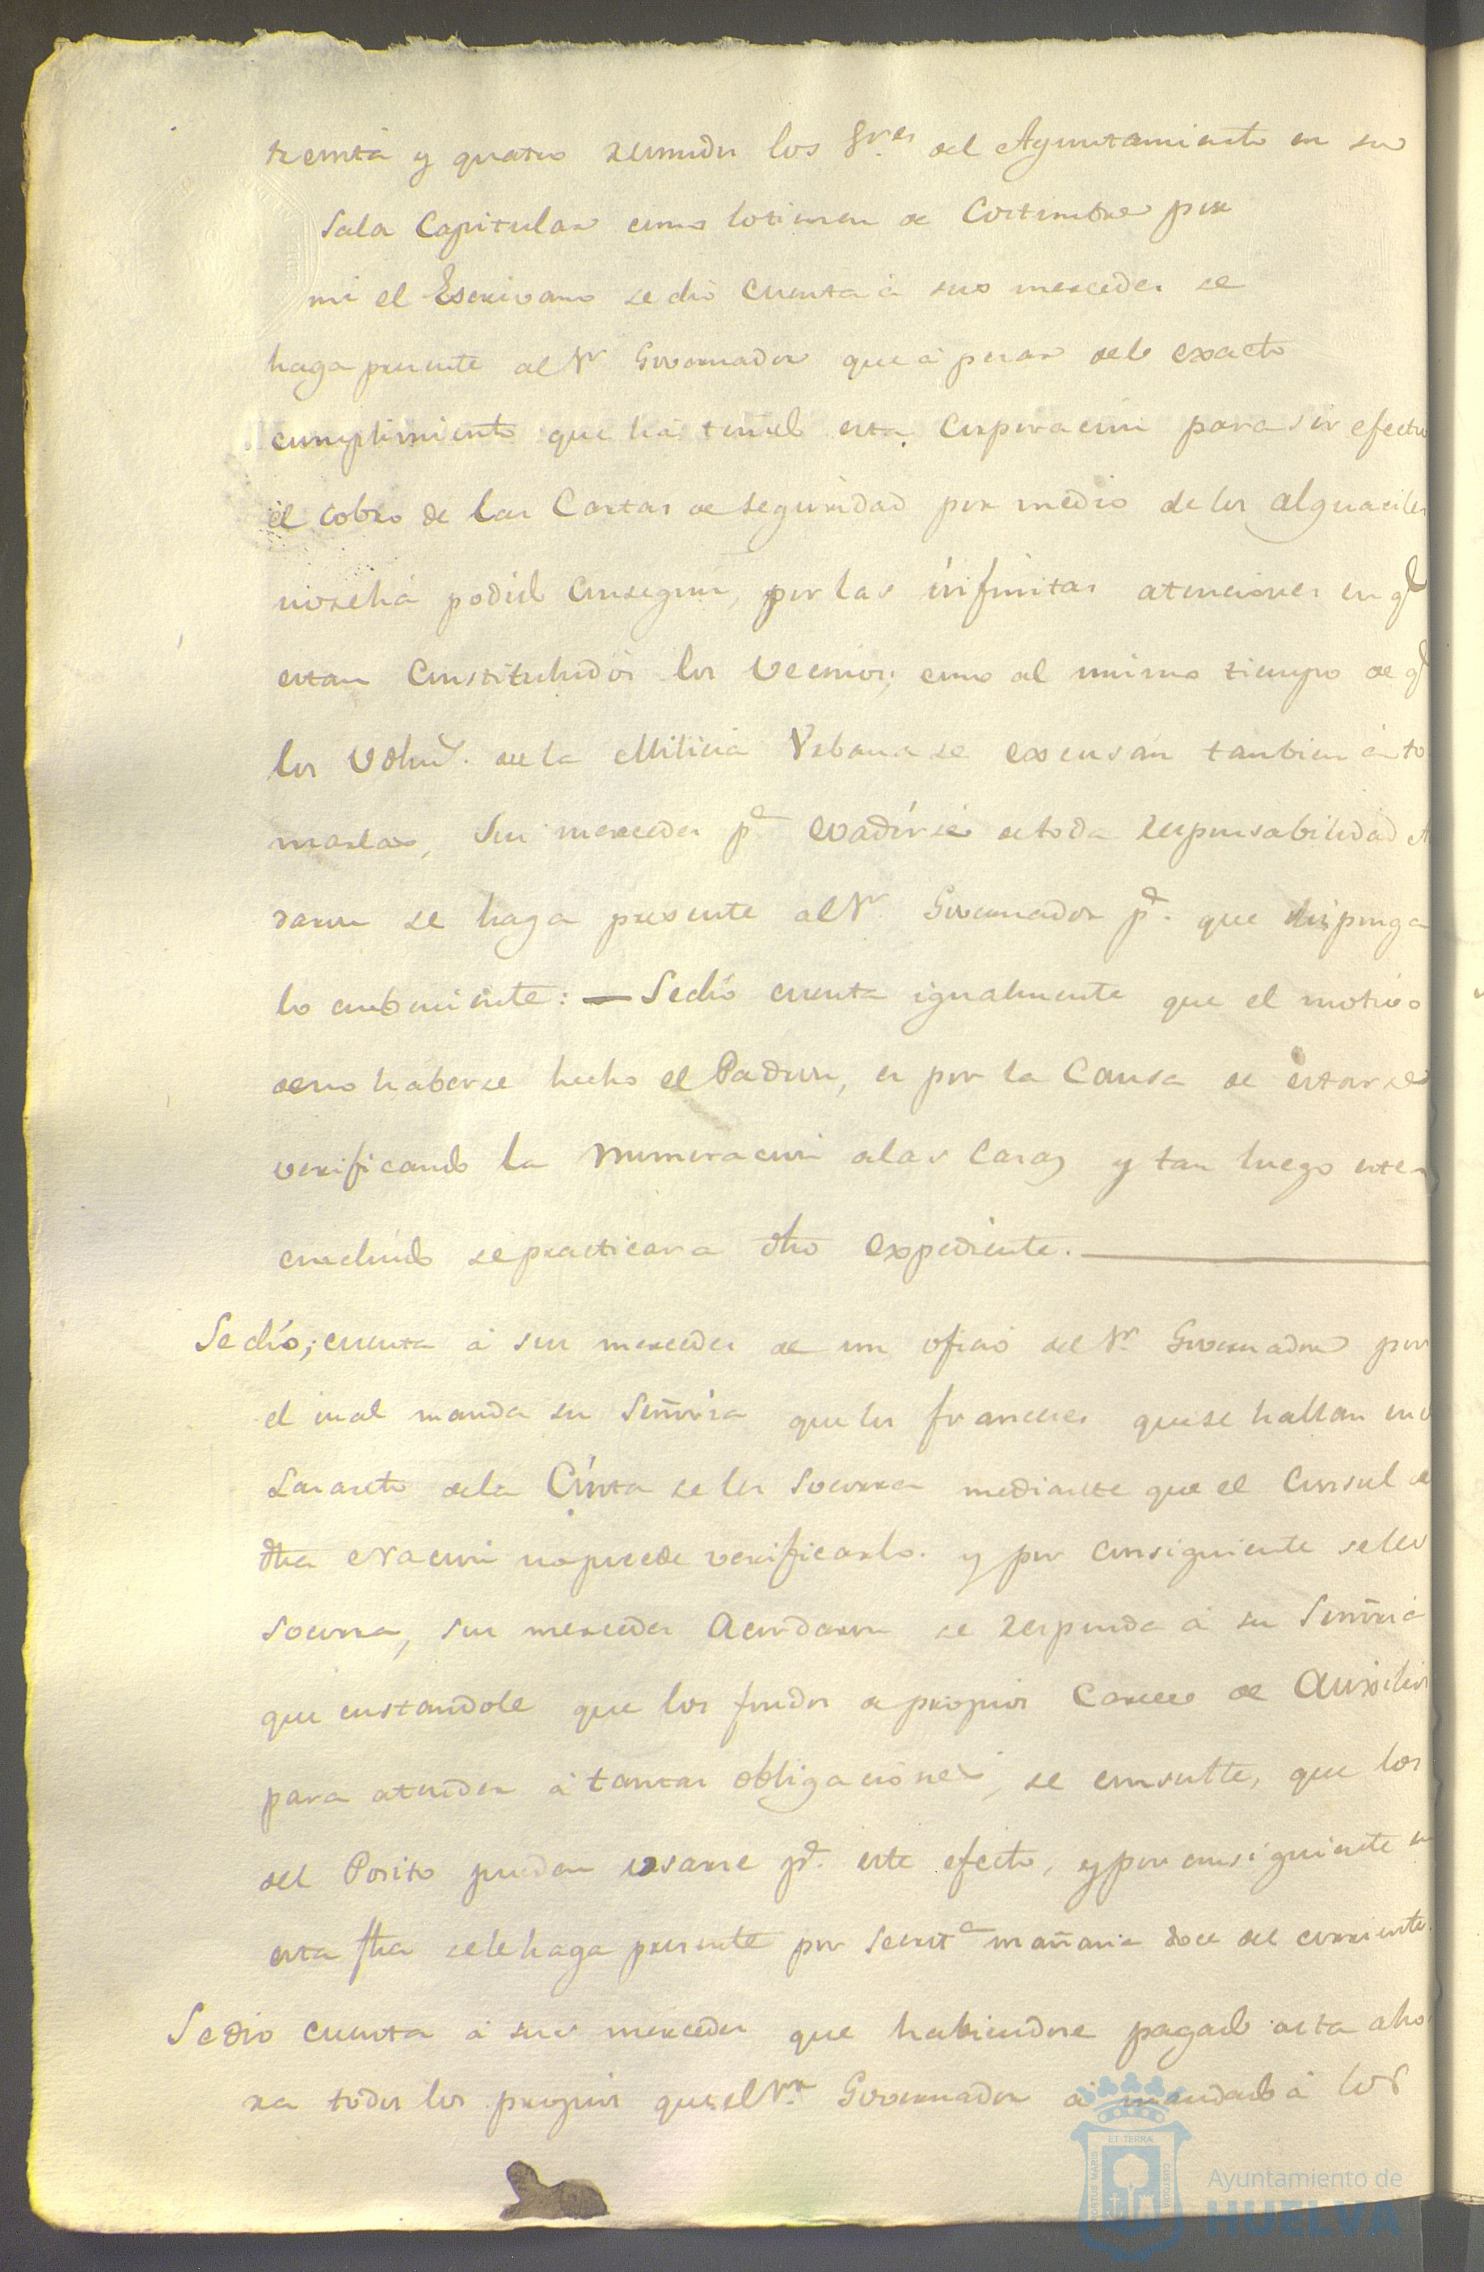 treinta y quatro reunidos los Sres. del Ayuntamiento en su
Sala Capitular como lo tienen de Costumbre por
mi el Escrivano se dio cuenta à sus mercedes se
haga presente al Sr. Governador que à pesar del exacto
cumplimiento que ha tenido esta Corporacion para
el cobro de las Cartas de Seguridad por medio de los alguaciles
nosehá podido Conseguir, por las infinitas atenciones en q.e
estan Constituhidos los Vecinos; como al mismo tiempo de q.e
los Volunt.s de la Milicia Vrbana se excusan tambien à to
marlas, Sus mercedes p.a evadirse de toda responsabilidad A
daron se haga presente al Sr. Governador p.a que disponga
lo combeniente: — Sedio cuenta igualmente que el motivo
deno haberse hecho el Padron, es por la Causa de estarse
verificando la Numeracion alas Casas y tan luego este
concluido sepracticara dho expediente.
Se dio, cuenta à sus mercedes de un oficio del Sr. Governador por
el cual manda su Señoria que los franceses quese hallan en
Lazareto dela Cinta se les Socorra mediante que el Consul de
dha nacion nopuede verificarlo. y por consiguiente seles
Socorra, sus mercedes Acordaron se responda à su Señoria
que constandole que los fondos de propios Carece de Auxilios
para atender à tantas obligaciones, se consulte, que los
del Posito puedan usarse p.a este efecto, y por consiguiente en
esta fha sele haga presente por Secret.a mañana doce del corriente.
Se dio cuenta à sus mercedes que habiendose pagado asta aho
ra todos los propios que el Sr. Governador à mandado à los
ET TERRÆ
PORTUS MARIS
CUSTODIA
Ayuntamiento de
HUELVA